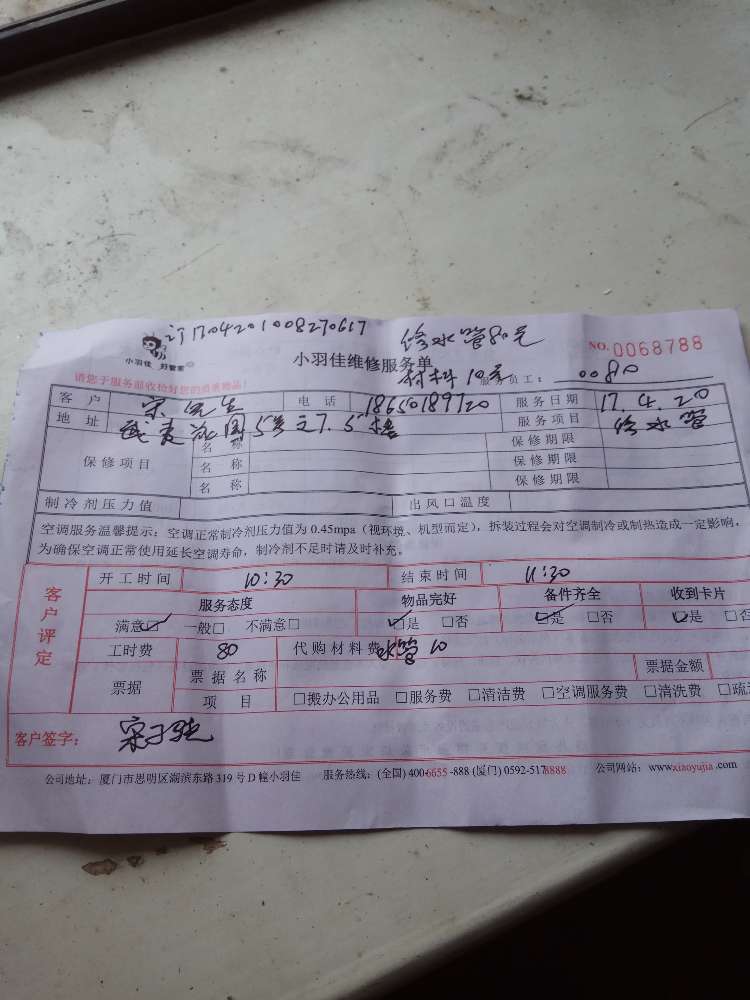 订1704201008270617 修水管80元
小羽佳 好管家 小羽佳维修服务单 NO.0068788
请您于服务前收拾好您的贵重物品! 材料10元 服务员工: 0080
客户 宋先生 电话 18650189720 服务日期 17.4.20
地址 5号之7. 5楼 服务项目 修水管
保修项目 名称 保修期限
名称 保修期限
名称 保修期限
制冷剂压力值 出风口温度
空调服务温馨提示:空调正常制冷剂压力值为0.45mpa(视环境、机型而定),拆装过程会对空调制冷或制热造成一定影响,
为确保空调正常使用延长空调寿命,制冷剂不足时请及时补充。
客户评定 开工时间 10:30 结束时间 11:30
服务态度 物品完好 备件齐全 收到卡片
满意☑ 一般□ 不满意□ ☑是 □否 ☑是 □否 ☑是 □否
工时费 80 代购材料费 水管 10
票据 票据名称 票据金额
项目 □搬办公用品 □服务费 □清洁费 □空调服务费 □清洗费 □疏
客户签字: 宋
公司地址:厦门市思明区湖滨东路319号D幢小羽佳 服务热线:(全国)400-6655-888 (厦门)0592-5178888 公司网站:www.xiaoyujia.com